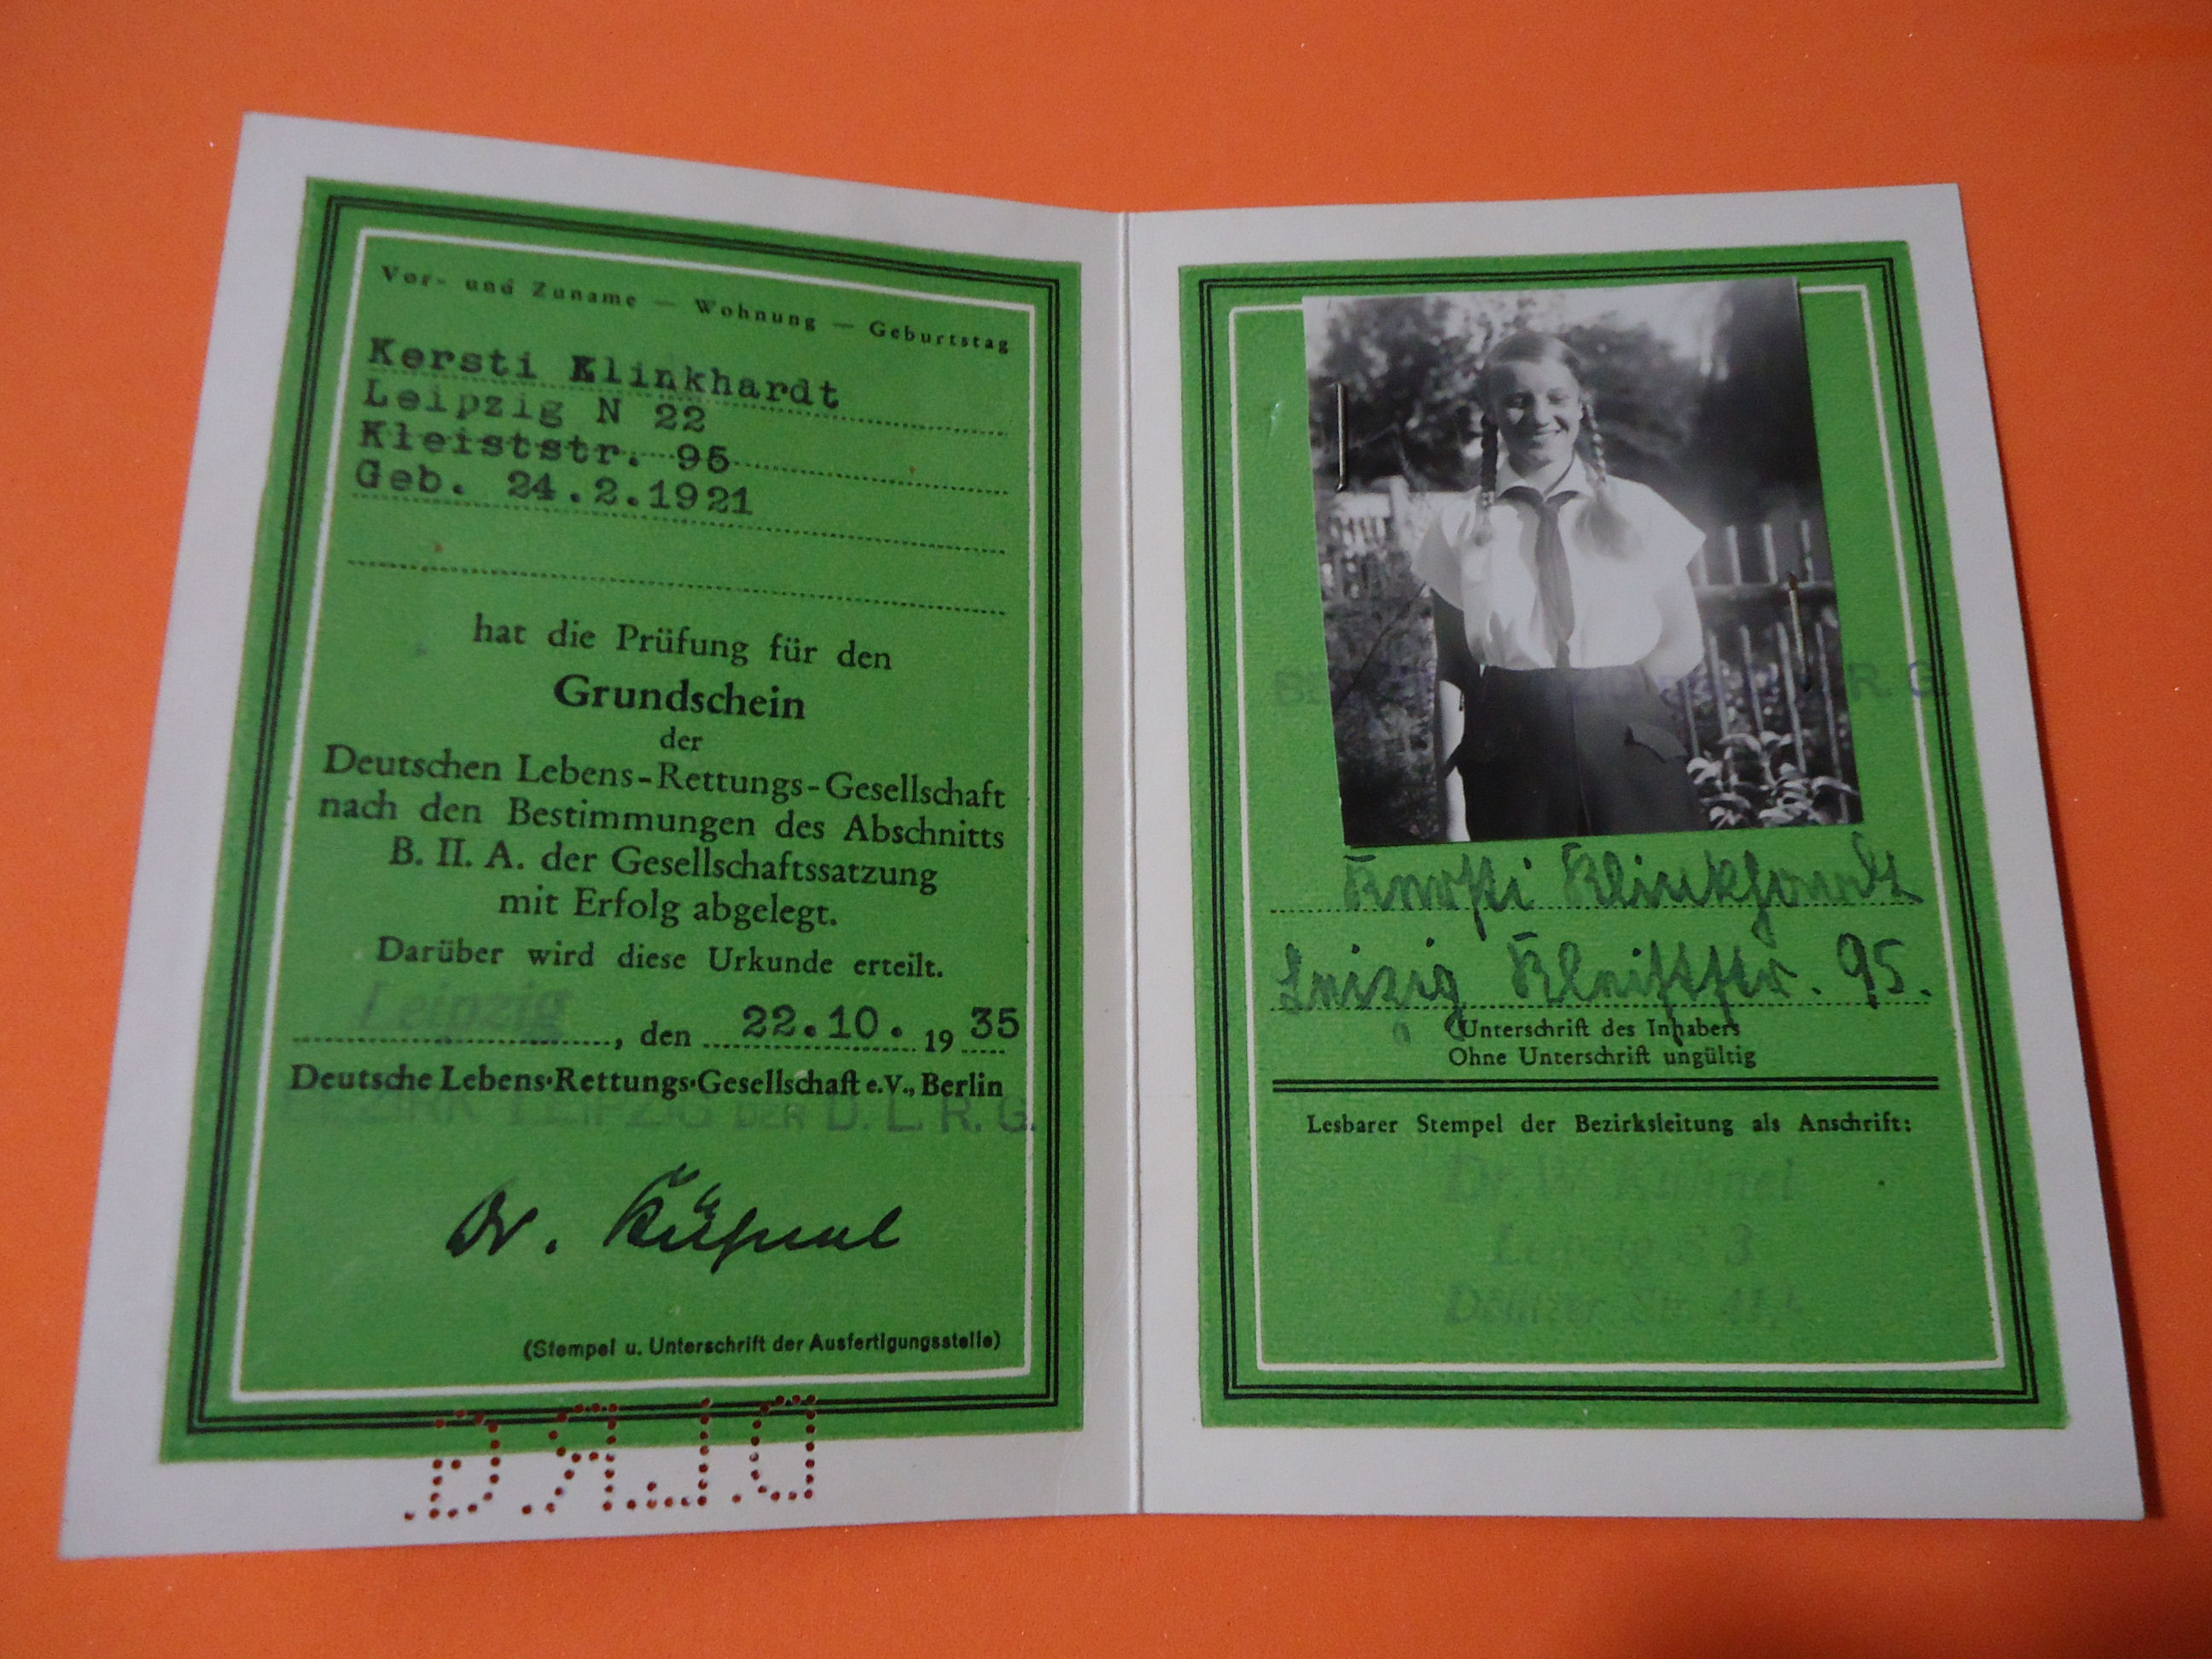 Vor- und Zuname — Wohnung — Geburtstag
Kersti Klinkhardt
Leipzig N 22
Kleiststr. 95
Geb. 24.2.1921
hat die Prüfung für den
Grundschein
der
Deutschen Lebens-Rettungs-Gesellschaft
nach den Bestimmungen des Abschnitts
B. II. A. der Gesellschaftssatzung
mit Erfolg abgelegt.
Darüber wird diese Urkunde erteilt.
Leipzig, den 22.10. 1935
Deutsche Lebens-Rettungs-Gesellschaft e.V., Berlin
BEZIRK LEIPZIG DER D. L. R. G.
Dr. Kühnel
(Stempel u. Unterschrift der Ausfertigungsstelle)
D.L.R.G.
R. G.
Kersti Klinkhardt
Leipzig Kleiststr. 95.
Unterschrift des Inhabers
Ohne Unterschrift ungültig
Lesbarer Stempel der Bezirksleitung als Anschrift:
Dr. W. Kühnel
Leipzig S 3
Dölitzer Str. 41